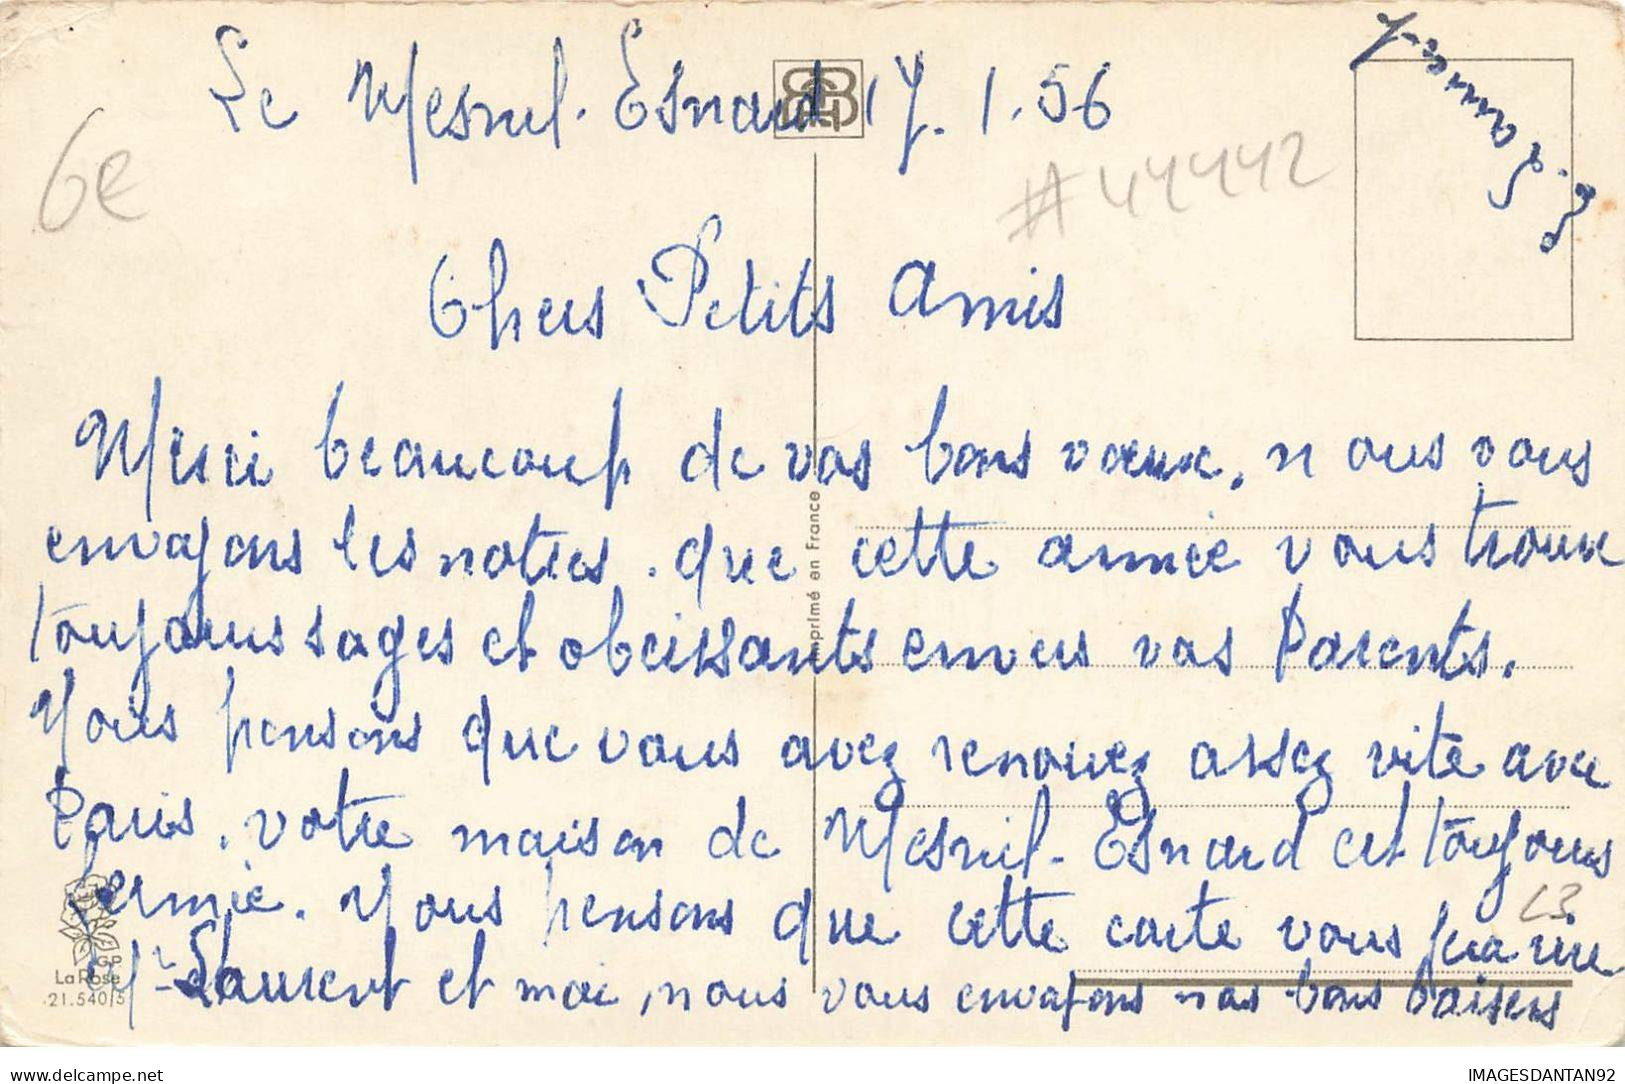 Le Mesnil-Esnard 17.1.56
6e
#44442
Chers Petits amis
Merci beaucoup de vos bons vœux. nous vous
envoyons les notres. que cette année vous trouve
toujours sages et obeissants envers vos Parents.
Nous pensons que vous avez renouez assez vite avec
Paris. votre maison de Mesnil-Esnard est toujours
fermée. Nous pensons que cette carte vous fera rire
Mr Laurent et moi, nous vous envoyons nos bons baisers
Imprimé en France
L3
GP
La Rose
21.540/5
IMAGESDANTAN92